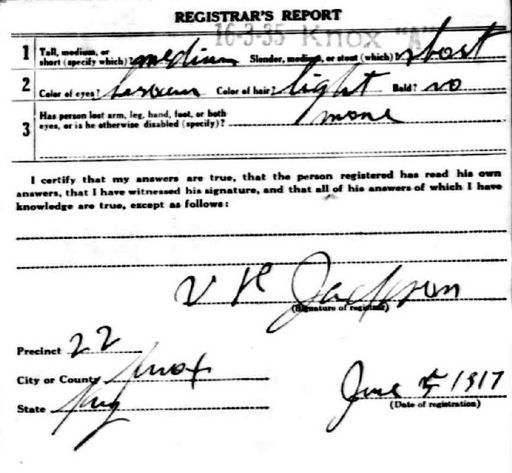 REGISTRAR'S REPORT
16-3-35 Knox "A"
1 Tall, medium, or short (specify which)? medium Slender, medium, or stout (which)? stout
2 Color of eyes? brown Color of hair? light Bald? no
3 Has person lost arm, leg, hand, foot, or both eyes, or is he otherwise disabled (specify)? none
I certify that my answers are true, that the person registered has read his own
answers, that I have witnessed his signature, and that all of his answers of which I have
knowledge are true, except as follows:
V R Jackson
(Signature of registrar)
Precinct 22
City or County Knox
State Ky
June 5 1917
(Date of registration)